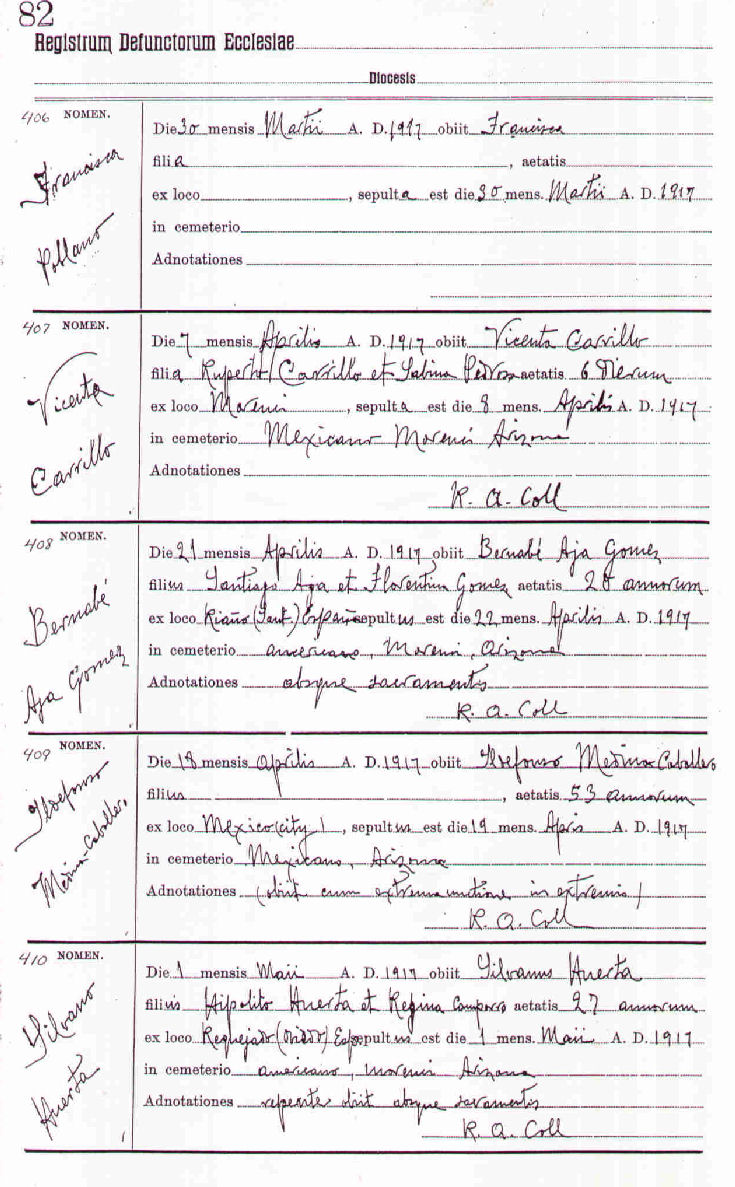 82
Registrum Defunctorum Ecclesiae
Diocesis
406 NOMEN.
Francisca
Pollano
Die 30 mensis Martii A. D. 1917 obiit Francisca
filia , aetatis
ex loco , sepulta est die 30 mens. Martii A. D. 1917
in cemeterio
Adnotationes
407 NOMEN.
Vicenta
Carrillo
Die 7 mensis Aprilis A. D. 1917 obiit Vicenta Carrillo
filia Ruperti Carrillo et Sabina aetatis 6 Dierum
ex loco Morenci , sepulta est die 8 mens. Aprilis A. D. 1917
in cemeterio Mexicano Morenci Arizona
Adnotationes
R. A. Coll
408 NOMEN.
Bernabé
Aja Gomez
Die 21 mensis Aprilis A. D. 1917 obiit Bernabé Aja Gomez
filius Santiago Aja et Florentina Gomez aetatis 28 annorum
ex loco Riaño (Sant.) España sepultus est die 22 mens. Aprilis A. D. 1917
in cemeterio americano, Morenci, Arizona
Adnotationes absque sacramentis
R. A. Coll
409 NOMEN.
Ildefonso
Medina-Caballer.
Die 18 mensis Aprilis A. D. 1917 obiit Ildefonso Medina-Caballero
filius , aetatis 53 annorum
ex loco Mexico (city) , sepultus est die 19 mens. Apris A. D. 1917
in cemeterio Mexicano, Arizona
Adnotationes (obiit cum extremaunctione in extremis)
R. A. Coll
410 NOMEN.
Silvano
Huerta
Die 1 mensis Maii A. D. 1917 obiit Silvanus Huerta
filius Hipolito Huerta et Regina aetatis 27 annorum
ex loco Requejado Esp sepultus est die 1 mens. Maii A. D. 1917
in cemeterio americano, Morenci Arizona
Adnotationes repente obiit absque sacramentis
R. A. Coll